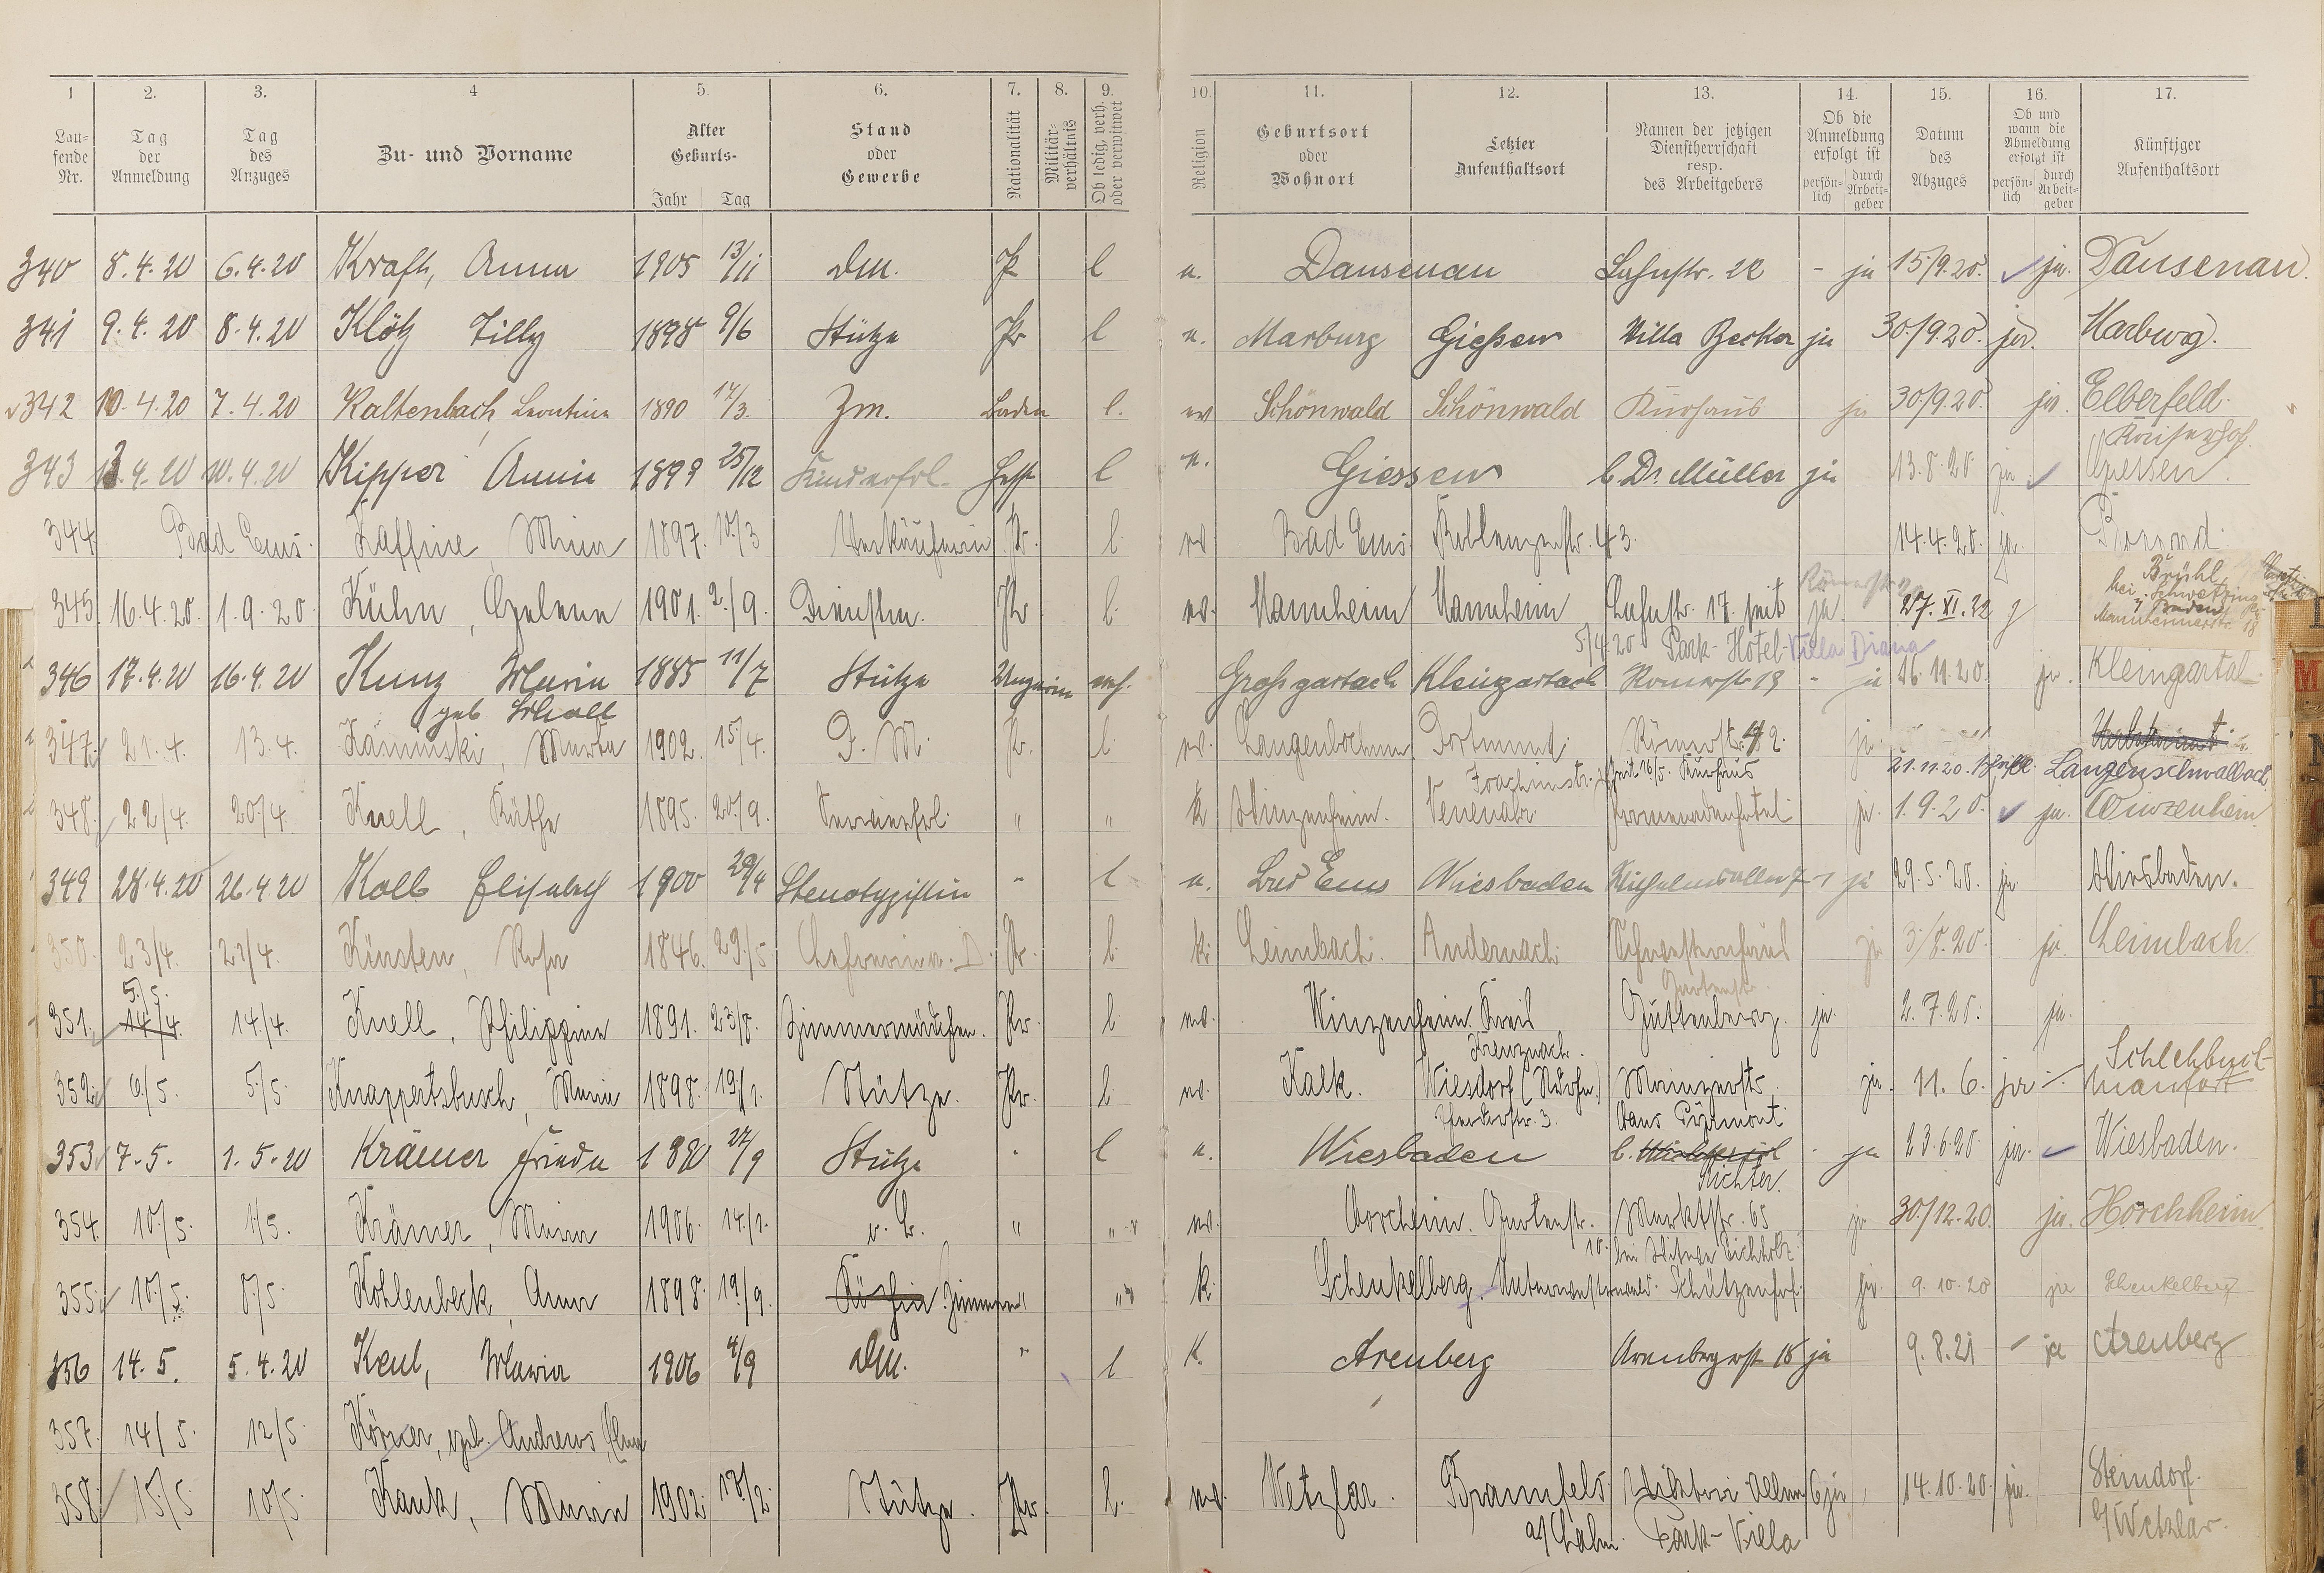 1 2. 3. 4 5. 6. 7. 8. 9. 10. 11. 12. 13. 14. 15. 16. 17.
Lau-
fende
Nr.
Tag
der
Anmeldung
Tag
des
Anzuges
Zu- und Vorname
Alter
Geburts-
Jahr Tag
Stand
oder
Gewerbe
Nationalität
Militär-
verhältnis
Ob ledig, verh.
oder verwitwet
Religion
Geburtsort
oder
Wohnort
Letzter
Aufenthaltsort
Namen der jetzigen
Dienstherrschaft
resp.
des Arbeitgebers
Ob die
Anmeldung
erfolgt ist
persön-
lich
durch
Arbeit-
geber
Datum
des
Abzuges
Ob und
wann die
Abmeldung
erfolgt ist
persön-
lich
durch
Arbeit-
geber
Künftiger
Aufenthaltsort
340 8.4.20 6.4.20 Kraft, Anna 1905 13/11 DM. Pr l Dausenau Lahnstr. 22 - ja 15/9.20. ja. Dausenau.
341 9.4.20 8.4.20 Klötz Tilly 1898 9/6 Stütze Pr l Marburg Gießen Villa Becker ja 30/9.20. ja. Marburg.
342 10.4.20 7.4.20 Kaltenbach, Leontine 1890 17/3. Zm. Baden l. ev Schönwald Schönwald Kurhaus ja 30/9.20. ja. Elberfeld.
Kaiserhof.
343 13.4.20 10.4.20 Kipper Annie 1899 25/12 Kinderfrl. Hess l Giessen b. Dr. Müller ja 13.8.20. ja Giessen.
344 Bad Ems. Kaffine, Minna 1897. 10/3 Verkäuferin Pr. l. ev Bad Ems. Koblenzerstr. 43. 14.4.20. ja.
345. 16.4.20. 1.9.20 Kühn, Helena 1901. 2/9. Dienstm. Pr l. ev. Mannheim Mannheim Lahnstr. 17 seit ja. 27.XI.22 Brühl
bei Schwetzingen
Baden
Mannheimerstr. 18
5/4.20 Park-Hotel-Villa Diana
346 17.4.20 16.4.20 Kunz Maria 1885 11/7 Stütze Ungarin verh. Großgartach Kleingartach Römerstr 19 - ja 16.11.20. ja. Kleingartal
geb Scholl
347. 21.4. 13.4. Kaminski, Martha 1902. 15/4. D.M. Pr. l. ev. Langenbochum Dortmund. Römerstr. 42. ja
Joachimstr. seit 16/5. Kurhaus 21.11.20. Langenschwalbach
348. 22/4. 20/4. Knell, Käthe 1895. 20/9. Servierfrl. " " k Winzenheim. Promenadenhotel ja. 1.9.20. ja. Winzenheim.
349 28.4.20 26.4.20 Kolb Elisabeth 1900 29/4 Stenotypistin - l Bad Ems Wiesbaden Wilhelmsallee 7 ja 29.5.20. ja. Wiesbaden.
350. 23/4. 21/4. Künsten, Rosa 1846. 29/5 Lehrerin a. D. Pr. l. k. Leimbach. Andernach. Schwesternhaus ja 3/8.20. ja. Leimbach.
Gartenstr.
5/5.
351. 14/4. 14/4. Knell, Philippina 1891. 23/8. Zimmermädchen. Pr l. ev. Winzenheim Kreis Guttenberg. ja. 2.7.20. ja.
Kreuznach.
352. 6/5. 5/5. Knappertsbusch, Maria 1898. 19/1. Stütze. Pr. l. ev. Kalk. Wiesdorf Mainzerstr. ja. 11.6. ja Schlehbusch-
Manfort
Haus Pyrmont
353 7.5. 1.5.20 Krämer Frieda 1880 27/9 Stütze l Wiesbaden b. - ja 23.6.20 ja. Wiesbaden.
Richter.
354. 10/5. 1/5. Krämer, Maria 1906. 14/1. " " ev. Horchheim. Gartenstr. Marktstr. 65 ja 30/12.20. ja. Horchheim.
10. bei Witwe Eichholz
355. 10/5. 8/5. Kohlenbeck, Anna 1898. 19/9. Köchin Zimmerm. " k. Schenkelberg. Unterwesterwald. Schützenhof. ja. 9.10.20 ja Schenkelberg
356 14.5. 5.4.20 Keul, Maria 1906 4/9 DM. " l k. Arenberg Arenbergerstr 18 ja 9.8.21 - ja Arenberg
357. 14/5. 12/5. Körner, geb. Andrews,
358. 15/5 10/5. Kauk, Maria 1902. 18/2. Stütze. Pr. l. ev. Wetzlar. Braunfels Viktoria Allee 6 ja 14.10.20. ja. Steindorf.
a/Lahn. Park-Villa b/Wetzlar.